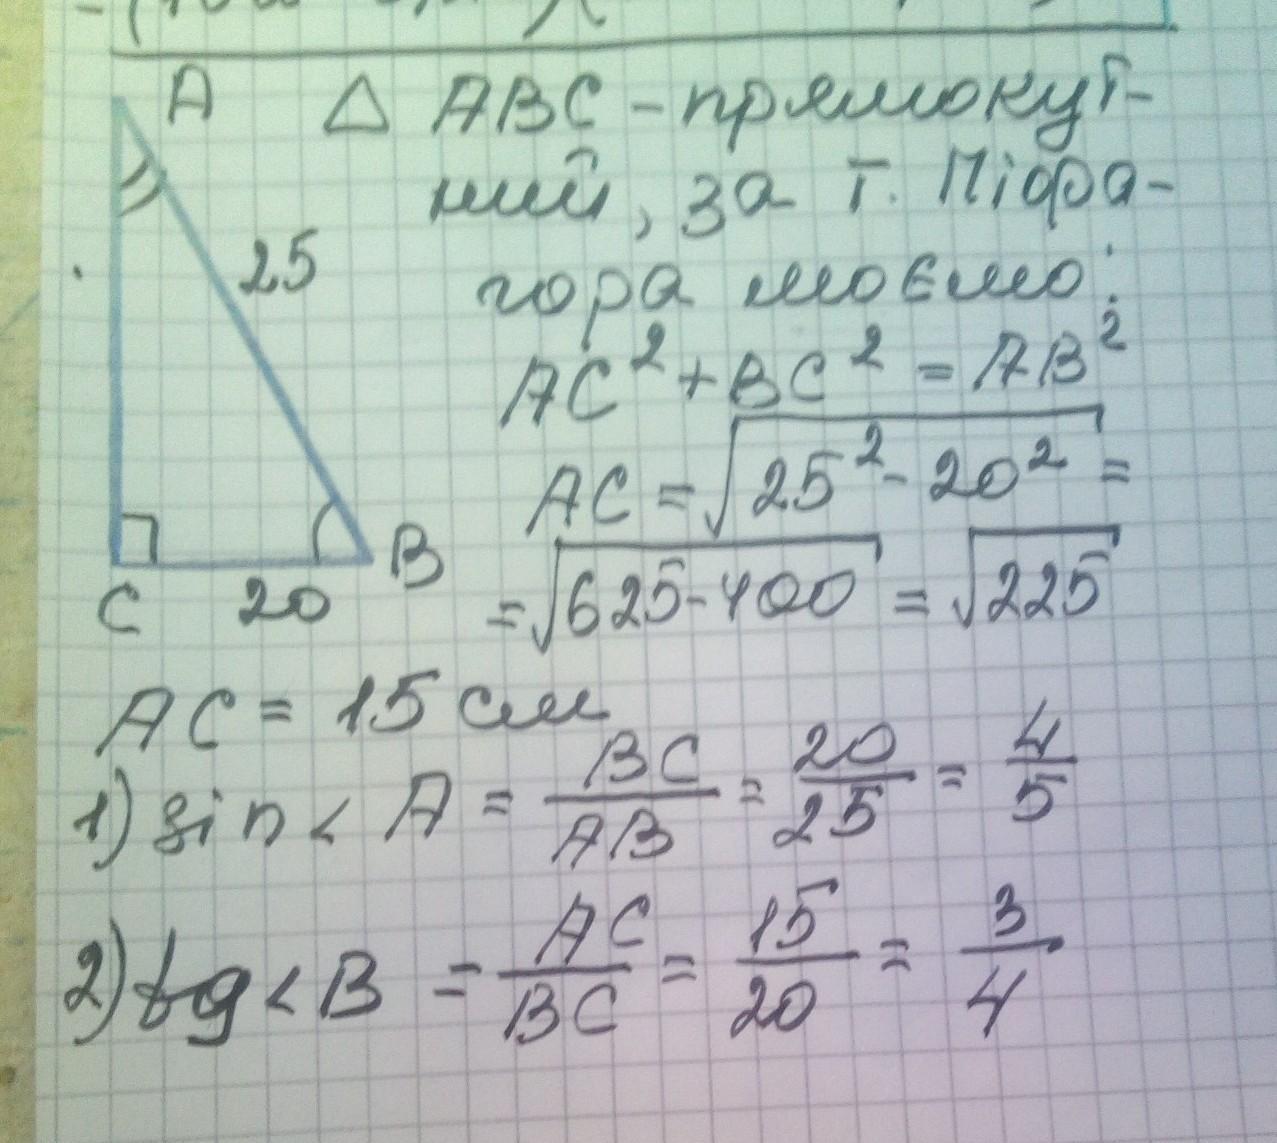 A
△ ABC - прямокут-
ний, за т. Піфа-
гора моємо:
25
AC² + BC² = AB²
AC = √25² - 20² =
= √625 - 400 = √225
C 20 B
AC = 15 см
1) sin < A = BC/AB = 20/25 = 4/5
2) tg < B = AC/BC = 15/20 = 3/4